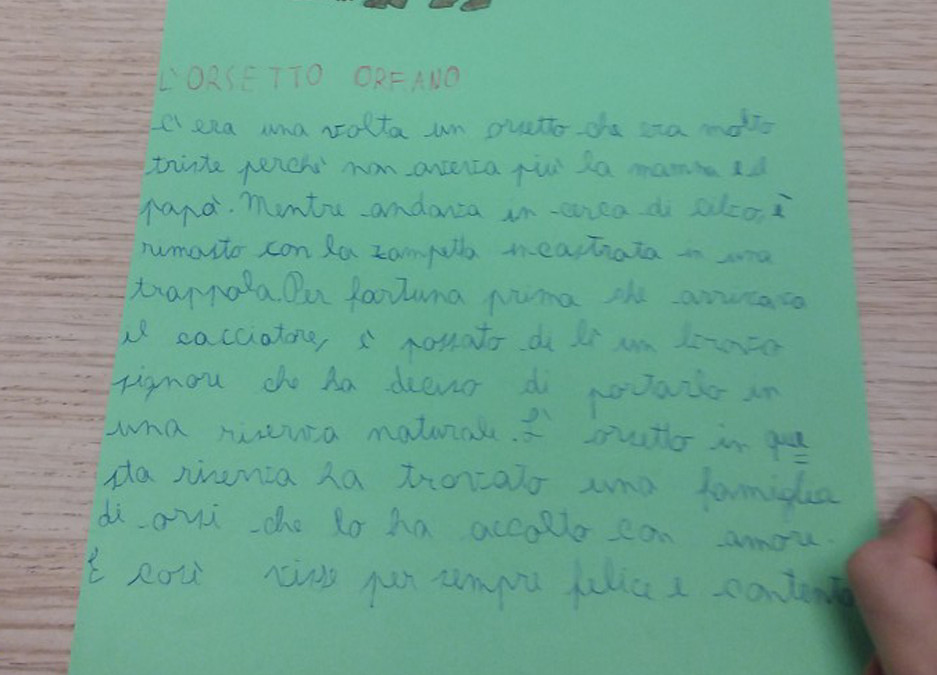 L'ORSETTO ORFANO
C'era una volta un orsetto che era molto
triste perchè non aveva più la mamma e il
papà. Mentre andava in cerca di cibo, è
rimasto con la zampetta incastrata in una
trappola. Per fortuna prima che arrivava
il cacciatore, è passato di lì un bravo
signore che ha deciso di portarlo in
una riserva naturale. L'orsetto in que
sta riserva ha trovato una famiglia
di orsi che lo ha accolto con amore.
E così visse per sempre felice e contento